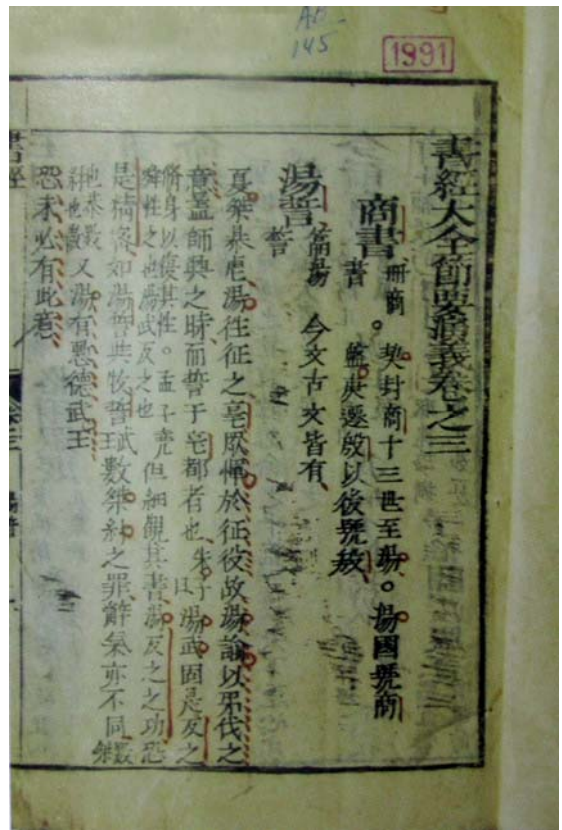 AB
145
1991
書經大全節要演義卷之三
商書 冊商書 ○契封商十三世至湯○湯國號商
盤庚遷殷以後號殷
湯誓 篇湯誓 今文古文皆有
夏桀暴虐湯往征之亳眾憚於征役故湯諭以弔伐之
意蓋師興之時而誓于亳都者也 朱子曰湯武固是反之
脩身以復其性○孟子堯舜性之也湯武反之也 但細觀其書湯反之之功恐
是精密如湯誓與牧誓 武王 數桀紂之罪辭氣亦不同
又湯有慙德武王
恐未必有此意
書經